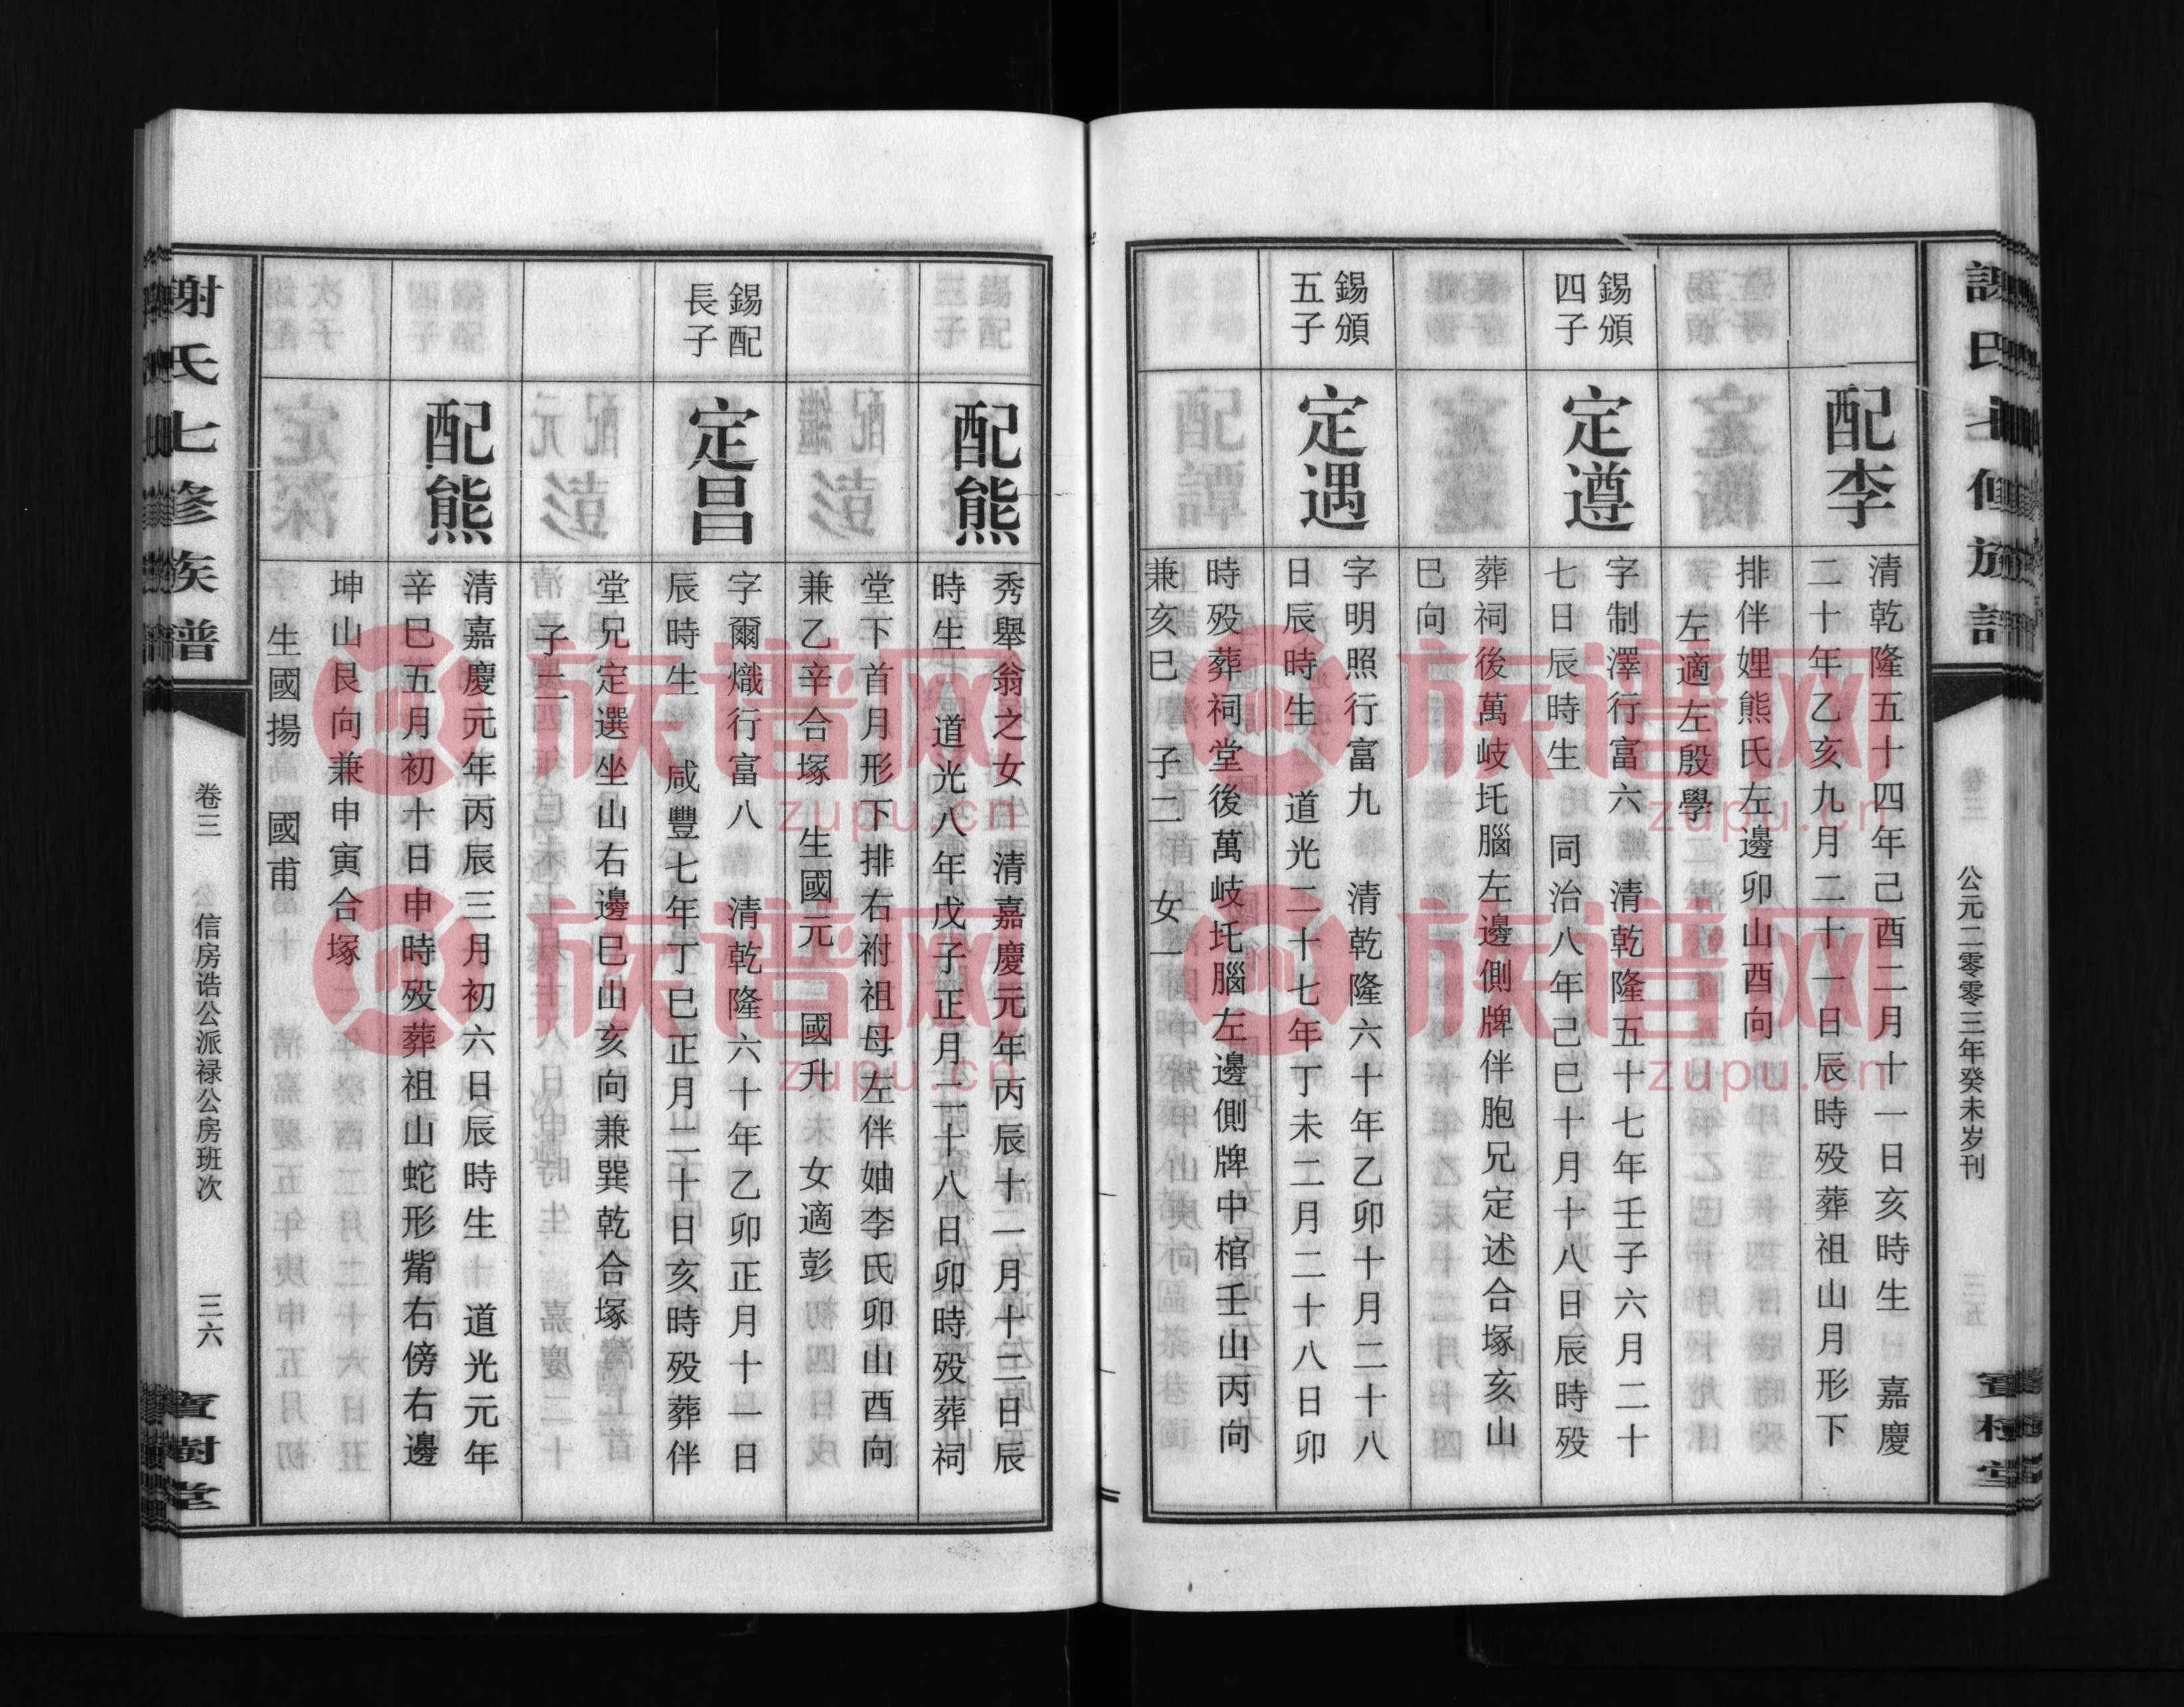 配李
清乾隆五十四年己酉二月十一日亥時生 嘉慶
二十年乙亥九月二十一日辰時歿葬祖山月形下
排伴娌熊氏左邊卯山酉向
左適左殷學
錫頒
四子
定遵
字制澤行富六 清乾隆五十七年壬子六月二十
七日辰時生 同治八年己巳十月十八日辰時歿
葬祠後萬岐圫腦左邊側牌伴胞兄定述合塚亥山
巳向
錫頒
五子
定遇
字明照行富九 清乾隆六十年乙卯十月二十八
日辰時生 道光二十七年丁未二月二十八日卯
時歿葬祠堂後萬岐圫腦左邊側牌中棺壬山丙向
兼亥巳 子二 女一
公元二零零三年癸未岁刊
配熊
秀舉翁之女 清嘉慶元年丙辰十一月十二日辰
時生 道光八年戊子正月二十八日卯時歿葬祠
堂下首月形下排右祔祖母左伴妯李氏卯山酉向
兼乙辛合塚 生國元 國升 女適彭
錫配
長子
定昌
字爾熾行富八 清乾隆六十年乙卯正月十一日
辰時生 咸豐七年丁巳正月二十日亥時歿葬伴
堂兄定選坐山右邊巳山亥向兼巽乾合塚
子二
配熊
清嘉慶元年丙辰三月初六日辰時生 道光元年
辛巳五月初十日申時歿葬祖山蛇形觜右傍右邊
坤山艮向兼申寅合塚
生國揚 國甫
謝氏七修族譜
卷三
信房诰公派禄公房班次
三六
寶樹堂
族谱网
zupu.cn
族谱网
zupu.cn
族谱网
zupu.cn
族谱网
zupu.cn